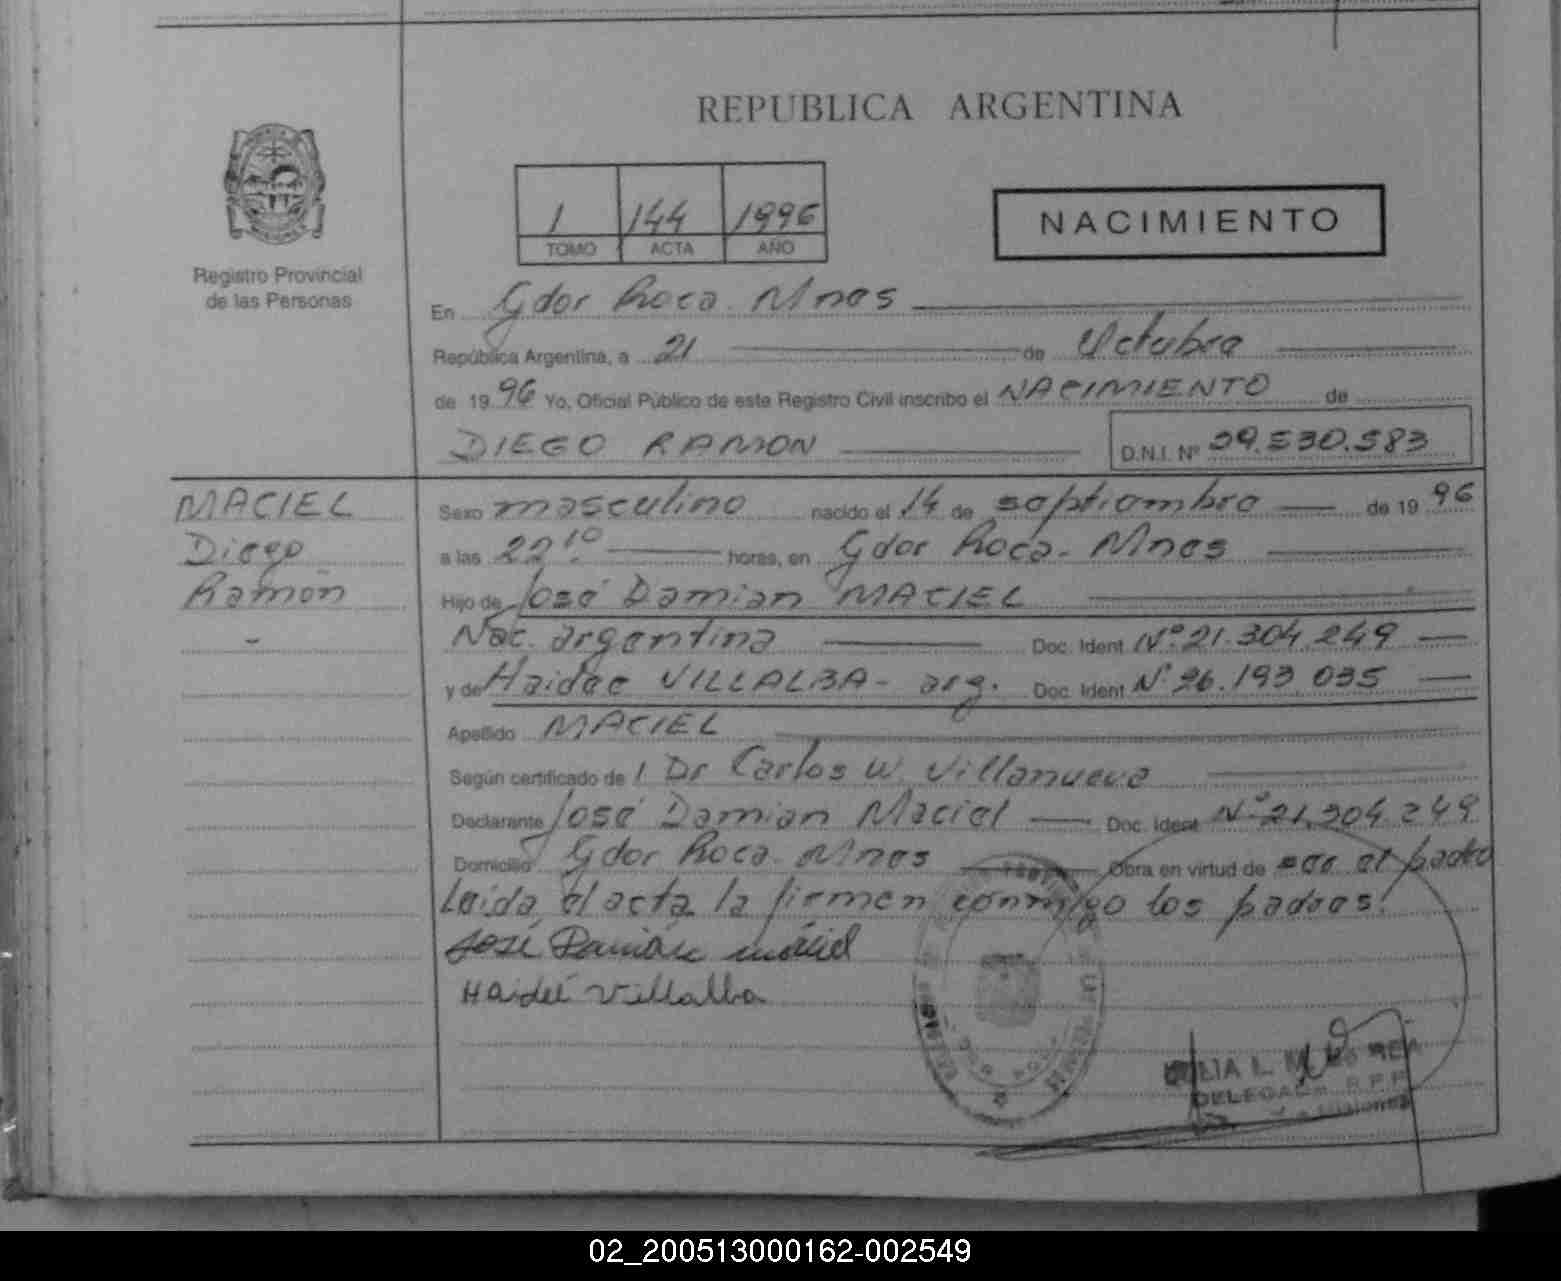 REPUBLICA ARGENTINA
Registro Provincial
de las Personas
1 144 1996
TOMO ACTA AÑO
NACIMIENTO
En Gdor Roca. Mnes
República Argentina, a 21 de Octubre
de 1996 Yo, Oficial Público de este Registro Civil inscribo el NACIMIENTO de
DIEGO RAMON D.N.I. Nº 39.530.583
MACIEL
Diego
Ramón
-
Sexo masculino nacido el 14 de septiembre de 1996
a las 22 10 horas, en Gdor Roca. Mnes
Hijo de José Damian MACIEL
Nac. argentina Doc. Ident Nº 21.304.249
y de Haidee VILLALBA - arg. Doc. Ident Nº 26.193.035
Apellido MACIEL
Según certificado de 1. Dr Carlos W. Villanueva
Declarante José Damian Maciel Doc. Ident Nº 21.304.249
Domicilio Gdor Roca. Mnes Obra en virtud de ser el padre
Leida el acta la firman conmigo los padres.
José Damián maciel
Haideé Villalba
L.
DELEGADA R.P.P.
Misiones
02_200513000162-002549